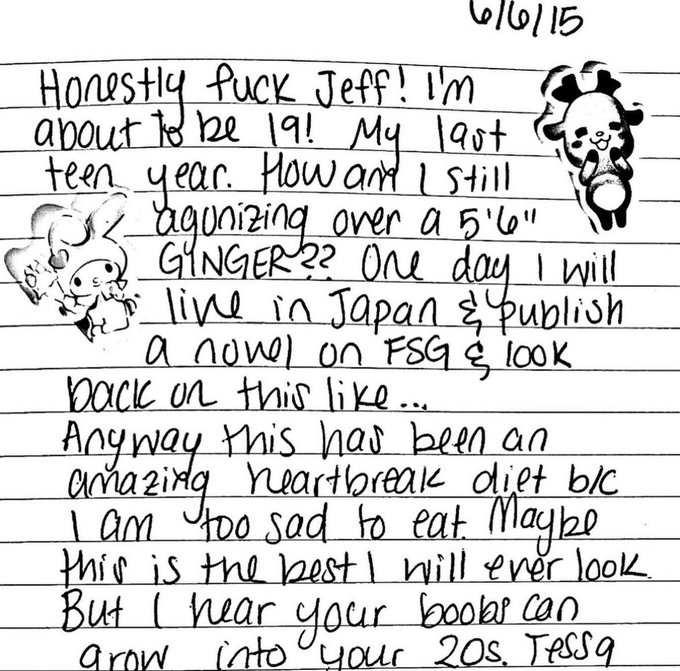 6/6/15
Honestly fuck Jeff! I'm
about to be 19! My last
teen year. How am I still
agonizing over a 5'6"
GINGER?? One day I will
live in Japan & publish
a novel on FSG & look
back on this like...
Anyway this has been an
amazing heartbreak diet b/c
I am too sad to eat. Maybe
this is the best I will ever look.
But I hear your boobs can
grow into your 20s. Tessa